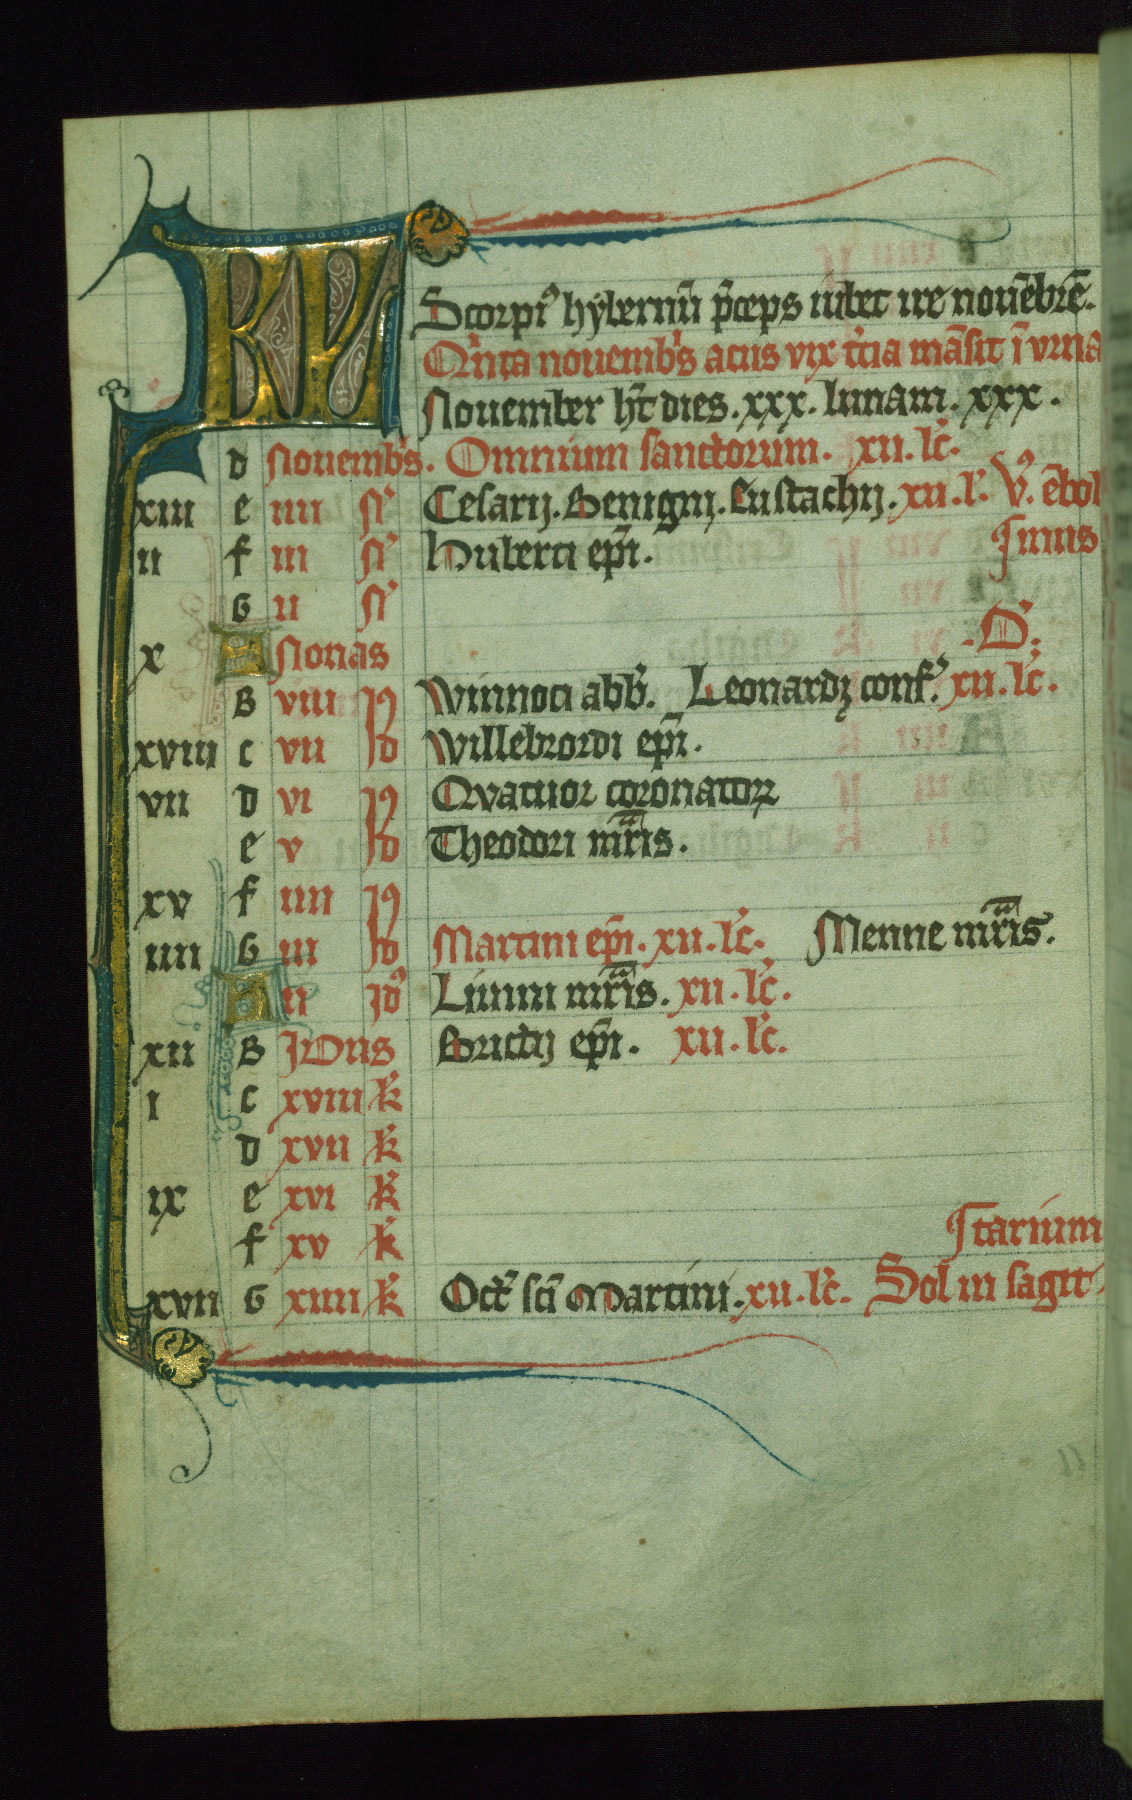 KL
Scorpi᾽ hybernū p̄ceps iubet ire nouēbrē.
Qͥnta nouemb᾽s acus vix t᾽cia māsit ī vrna
Nouember h̄t dies. xxx. lunam. xxx.
d Nouemb᾽s. Omnium sanctorum. xii. lc̄.
xiii e iiii N᾽ Cesarij. Benigni. Eustachij. xii. l᾽. V᾽. ēbol
ii f iii N᾽ Huberti ep̄i. ismus
G ii N᾽
x A Nonas .D.
B viii Id᾽ Winnoci abb᾽. Leonardi conf᾽. xii. lc̄.
xviii c vii Id Willebrordi ep̄i.
vii d vi Id᾽ Qvatuor coronatorꝝ
e v Id Theodori mr̄is.
xv f iiii Id᾽
iiii G iii Id Martini ep̄i. xii. lc̄. Menne mr̄is.
A ii Id᾽ Liuini mr̄is. xii. lc̄.
xii B Idus Brictij ep̄i. xii. lc̄.
i c xviii k᾽
d xvii k᾽
ix e xvi k᾽
f xv k᾽ tarium
xvii G xiiii k᾽ Oct᾽ sc̄i Martini. xii. lc̄. Sol in sagit